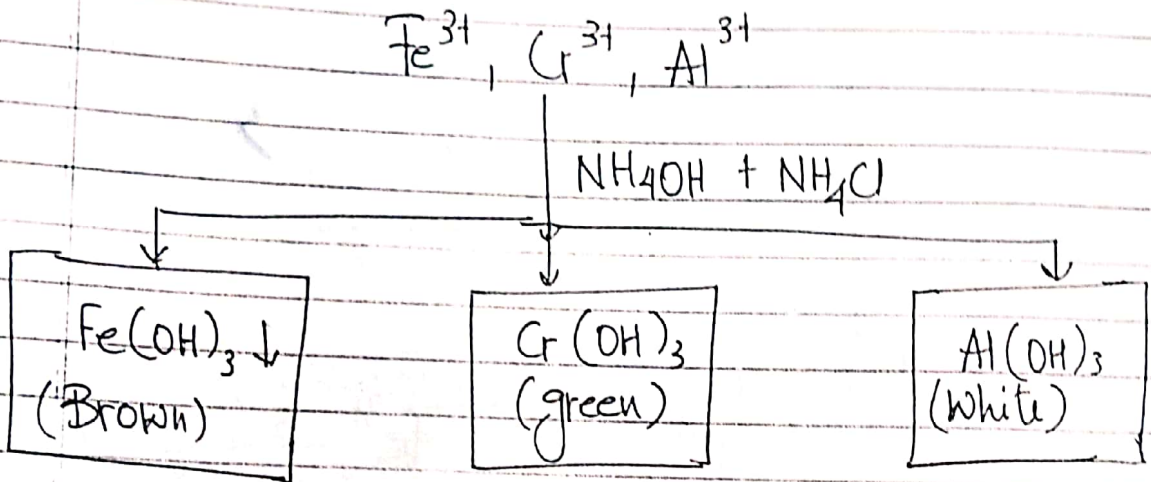 Fe³⁺, Cr³⁺, Al³⁺
NH₄OH + NH₄Cl
Fe(OH)₃ ↓
(Brown)
Cr(OH)₃
(green)
Al(OH)₃
(White)